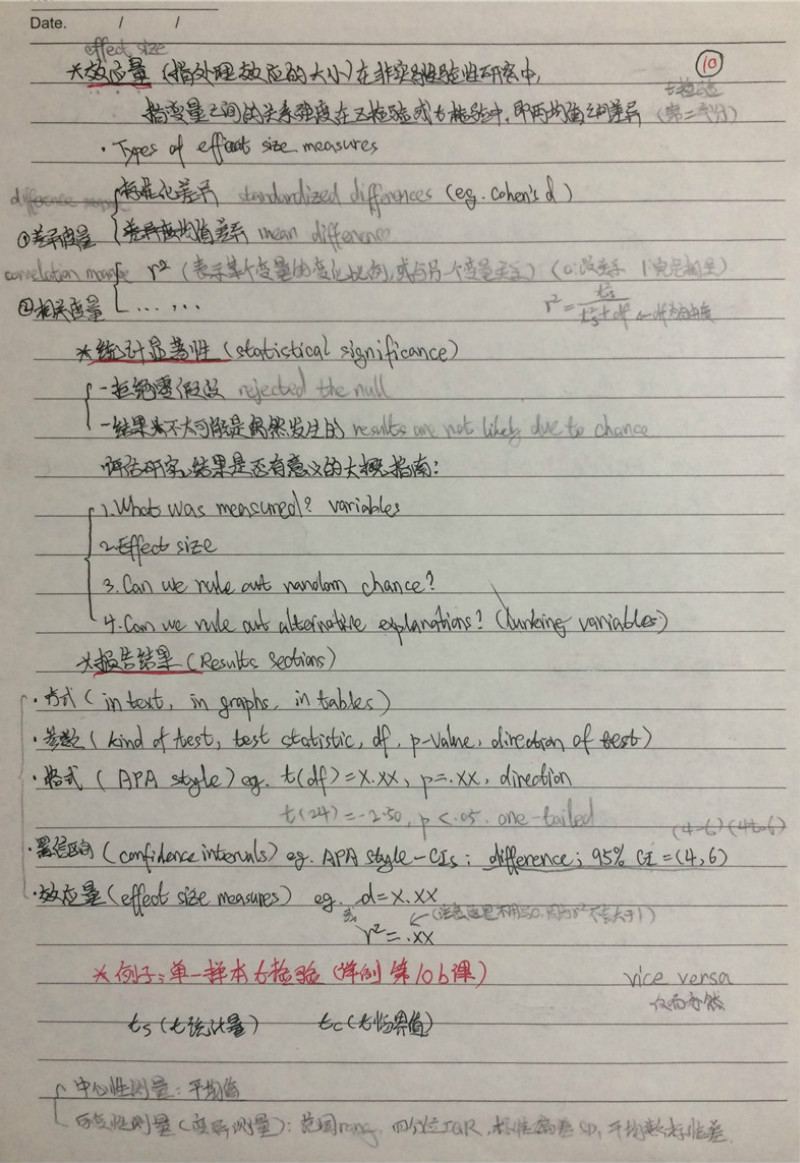 Date. / /
effect size
*效应量 (指处理效应的大小) 在非实验性研究中, ⑩
指变量之间的关系强度在Z检验或t检验中,即两均值之间差异 (第二部分)
t检验
· Types of effect size measures
标准化差异 standardized differences (eg. Cohen's d)
①差异度量 均值差异 mean difference
correlation r² (表示某个变量的变化比例, 或与另一个变量关系) (0:没关系 1完全相关)
②相关度量 ……, r² = ts²/ts²+df ← df为自由度
*统计显著性 (statistical significance)
-拒绝零假设 rejected the null
-结果不大可能是偶然发生的 results are not likely due to chance
评估研究结果是否有意义的大概指南:
1.What was measured? variables
2.Effect size
3.Can we rule out random chance?
4.Can we rule out alternative explanations? (lurking variables)
*报告结果 (Results sections)
·方式 (in text, in graphs, in tables)
·参数 (kind of test, test statistic, df, p-value, direction of test)
·格式 (APA style) eg. t(df)=X.XX, p=.XX, direction
t(24)=-2.50, p<.05. one-tailed
(4-6)
·置信区间 (confidence intervals) eg. APA style-CIs: difference; 95% CI=(4,6)
·效应量 (effect size measures) eg. d=x.xx
r²=.xx
*例子:单一样本t检验 (样例 第10b课) vice versa
反而亦然
ts (t统计量) tc (t临界值)
中心性测量:平均值
四分位IQR